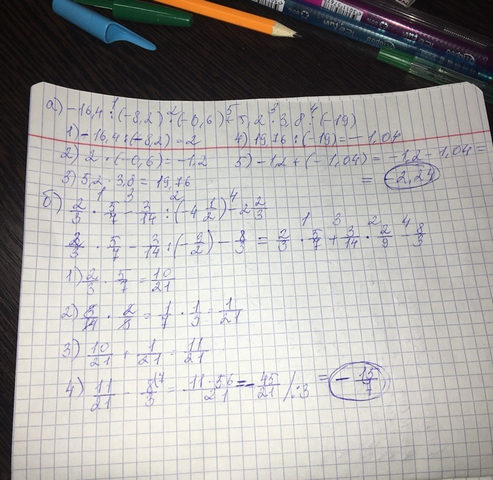 а) -16,4 : (-8,2) · (-0,6) - 5,2 · 3,8 : (-19)
1) -16,4 : (-8,2) = 2
4) 19,76 : (-19) = -1,04
2) 2 · (-0,6) = -1,2
5) -1,2 + (-1,04) = -1,2 - 1,04 =
3) 5,2 · 3,8 = 19,76
= -2,24
б) 2/3 · 5/7 - 3/14 : (-4 1/2) - 2 2/3
2/3 · 5/7 - 3/14 : (-9/2) - 8/3 = 2/3 · 5/7 + 3/14 · 2/9 - 8/3
1) 2/3 · 5/7 = 10/21
2) 3/14 · 2/9 = 1/7 · 1/3 = 1/21
3) 10/21 + 1/21 = 11/21
4) 11/21 - 8/3 (7 = 11-56/21 = -45/21 /:3 = -15/7